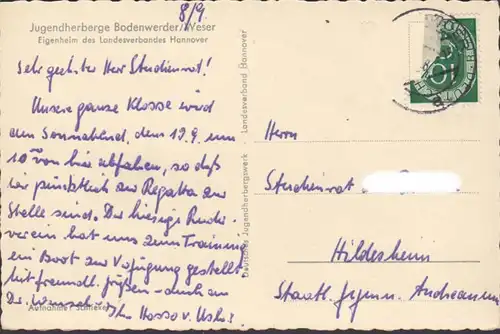 Jugendherberge Bodenwerder/Weser
Eigenheim des Landesverbandes Hannover
8/9.
Sehr geehrter Herr Studienrat!
Unsere ganze Klasse wird
am Sonnabend, dem 19.9. um
10°° von hier abfahren, so daß
wir pünktlich zur Regatta zur
Stelle sind. Der hiesige Ruder-
verein hat uns zum Training
ein Boot zur Verfügung gestellt
Mit freundl. Grüßen – auch an
Dr. Ihr Hasso v.
Aufnahme:
Deutsches Jugendherbergswerk · Landesverband Hannover
Herrn
Studienrat
Hildesheim
Staatl. Gymn. Andreanum